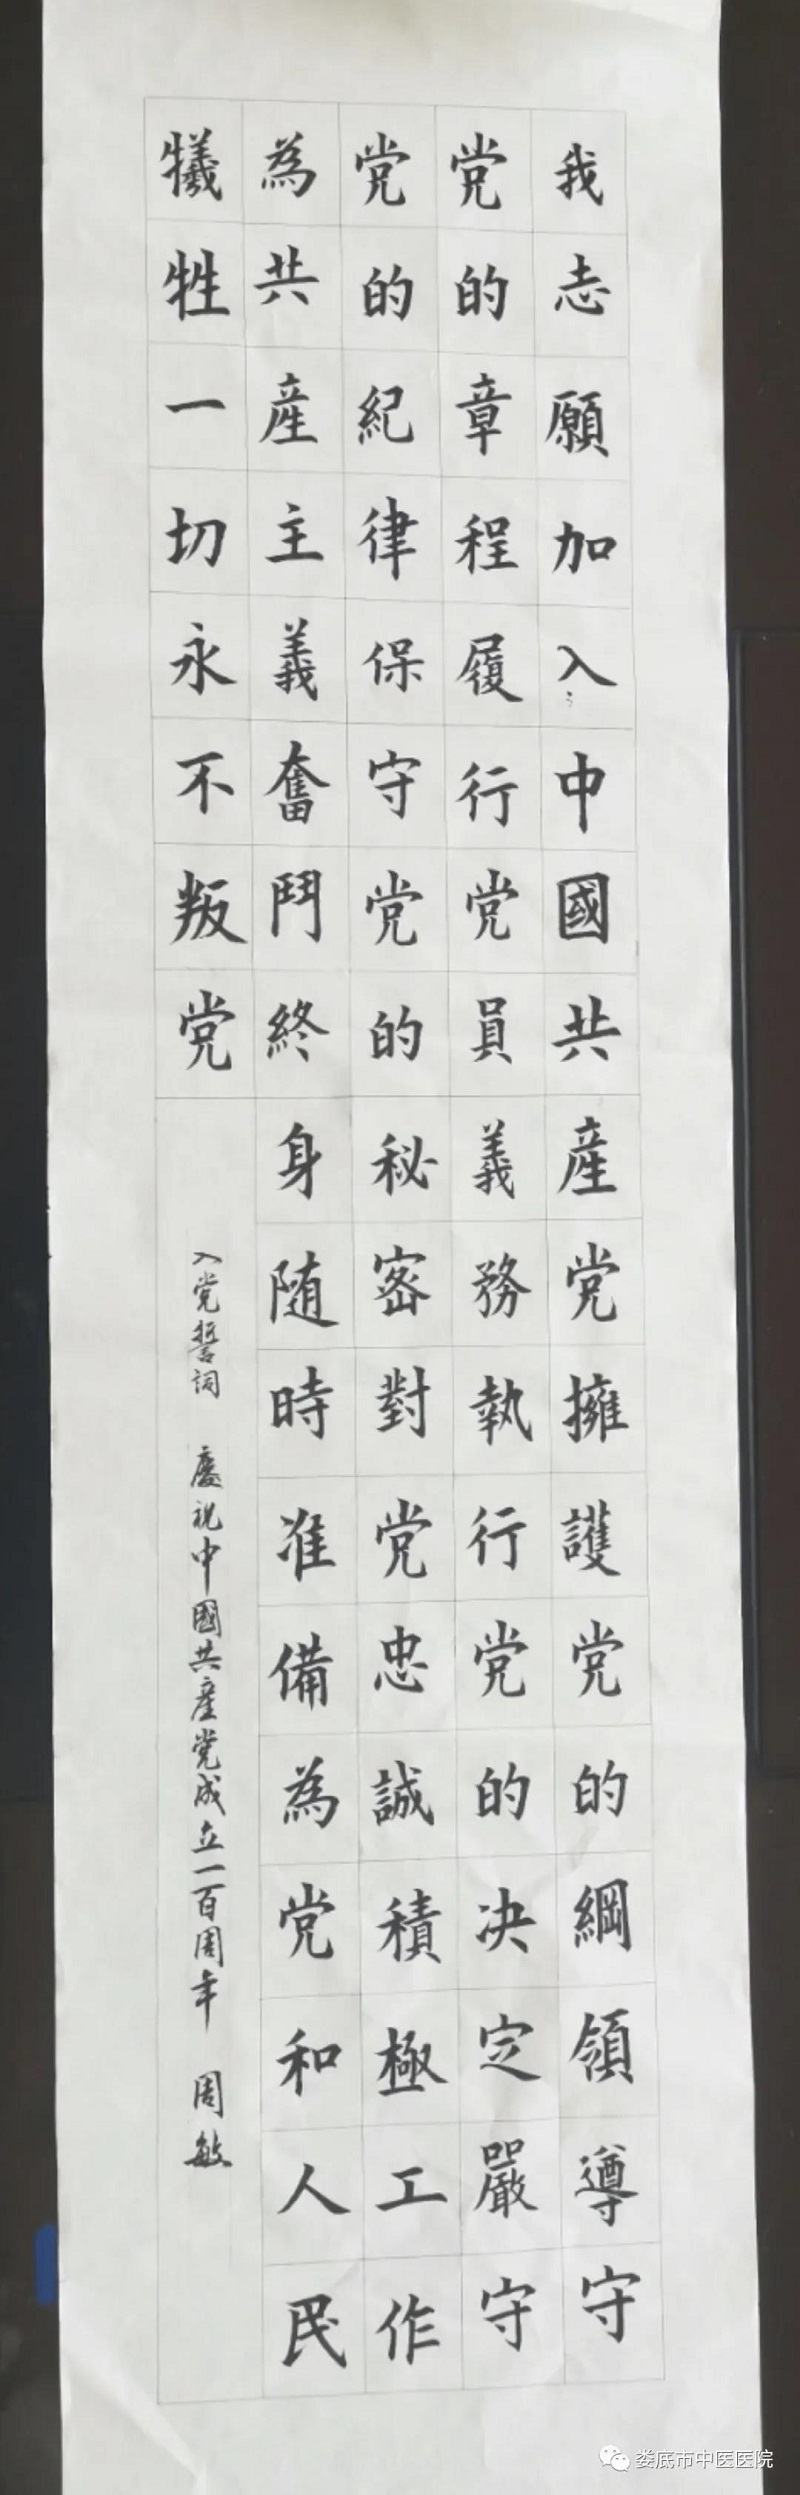 我志願加入中國共産党擁護党的綱領導守
党的章程履行党員義務執行党的决定嚴守
党的紀律保守党的秘密對党忠誠積極工作
為共産主義奮鬥終身随時准備為党和人民
犧牲一切永不叛党
入党誓詞 慶祝中國共産党成立一百周年 周敏
娄底市中医医院